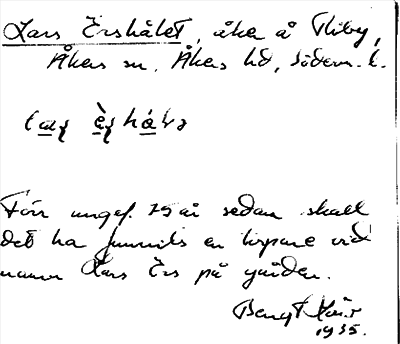 Lars Ershålet, åker å Valby,
Åkers sn, Åkers hd, Söderm. l.
För ungef. 75 år sedan skall
det ha funnits en torpare vid
namn Lars Ers på gården.
Bengt
1935.